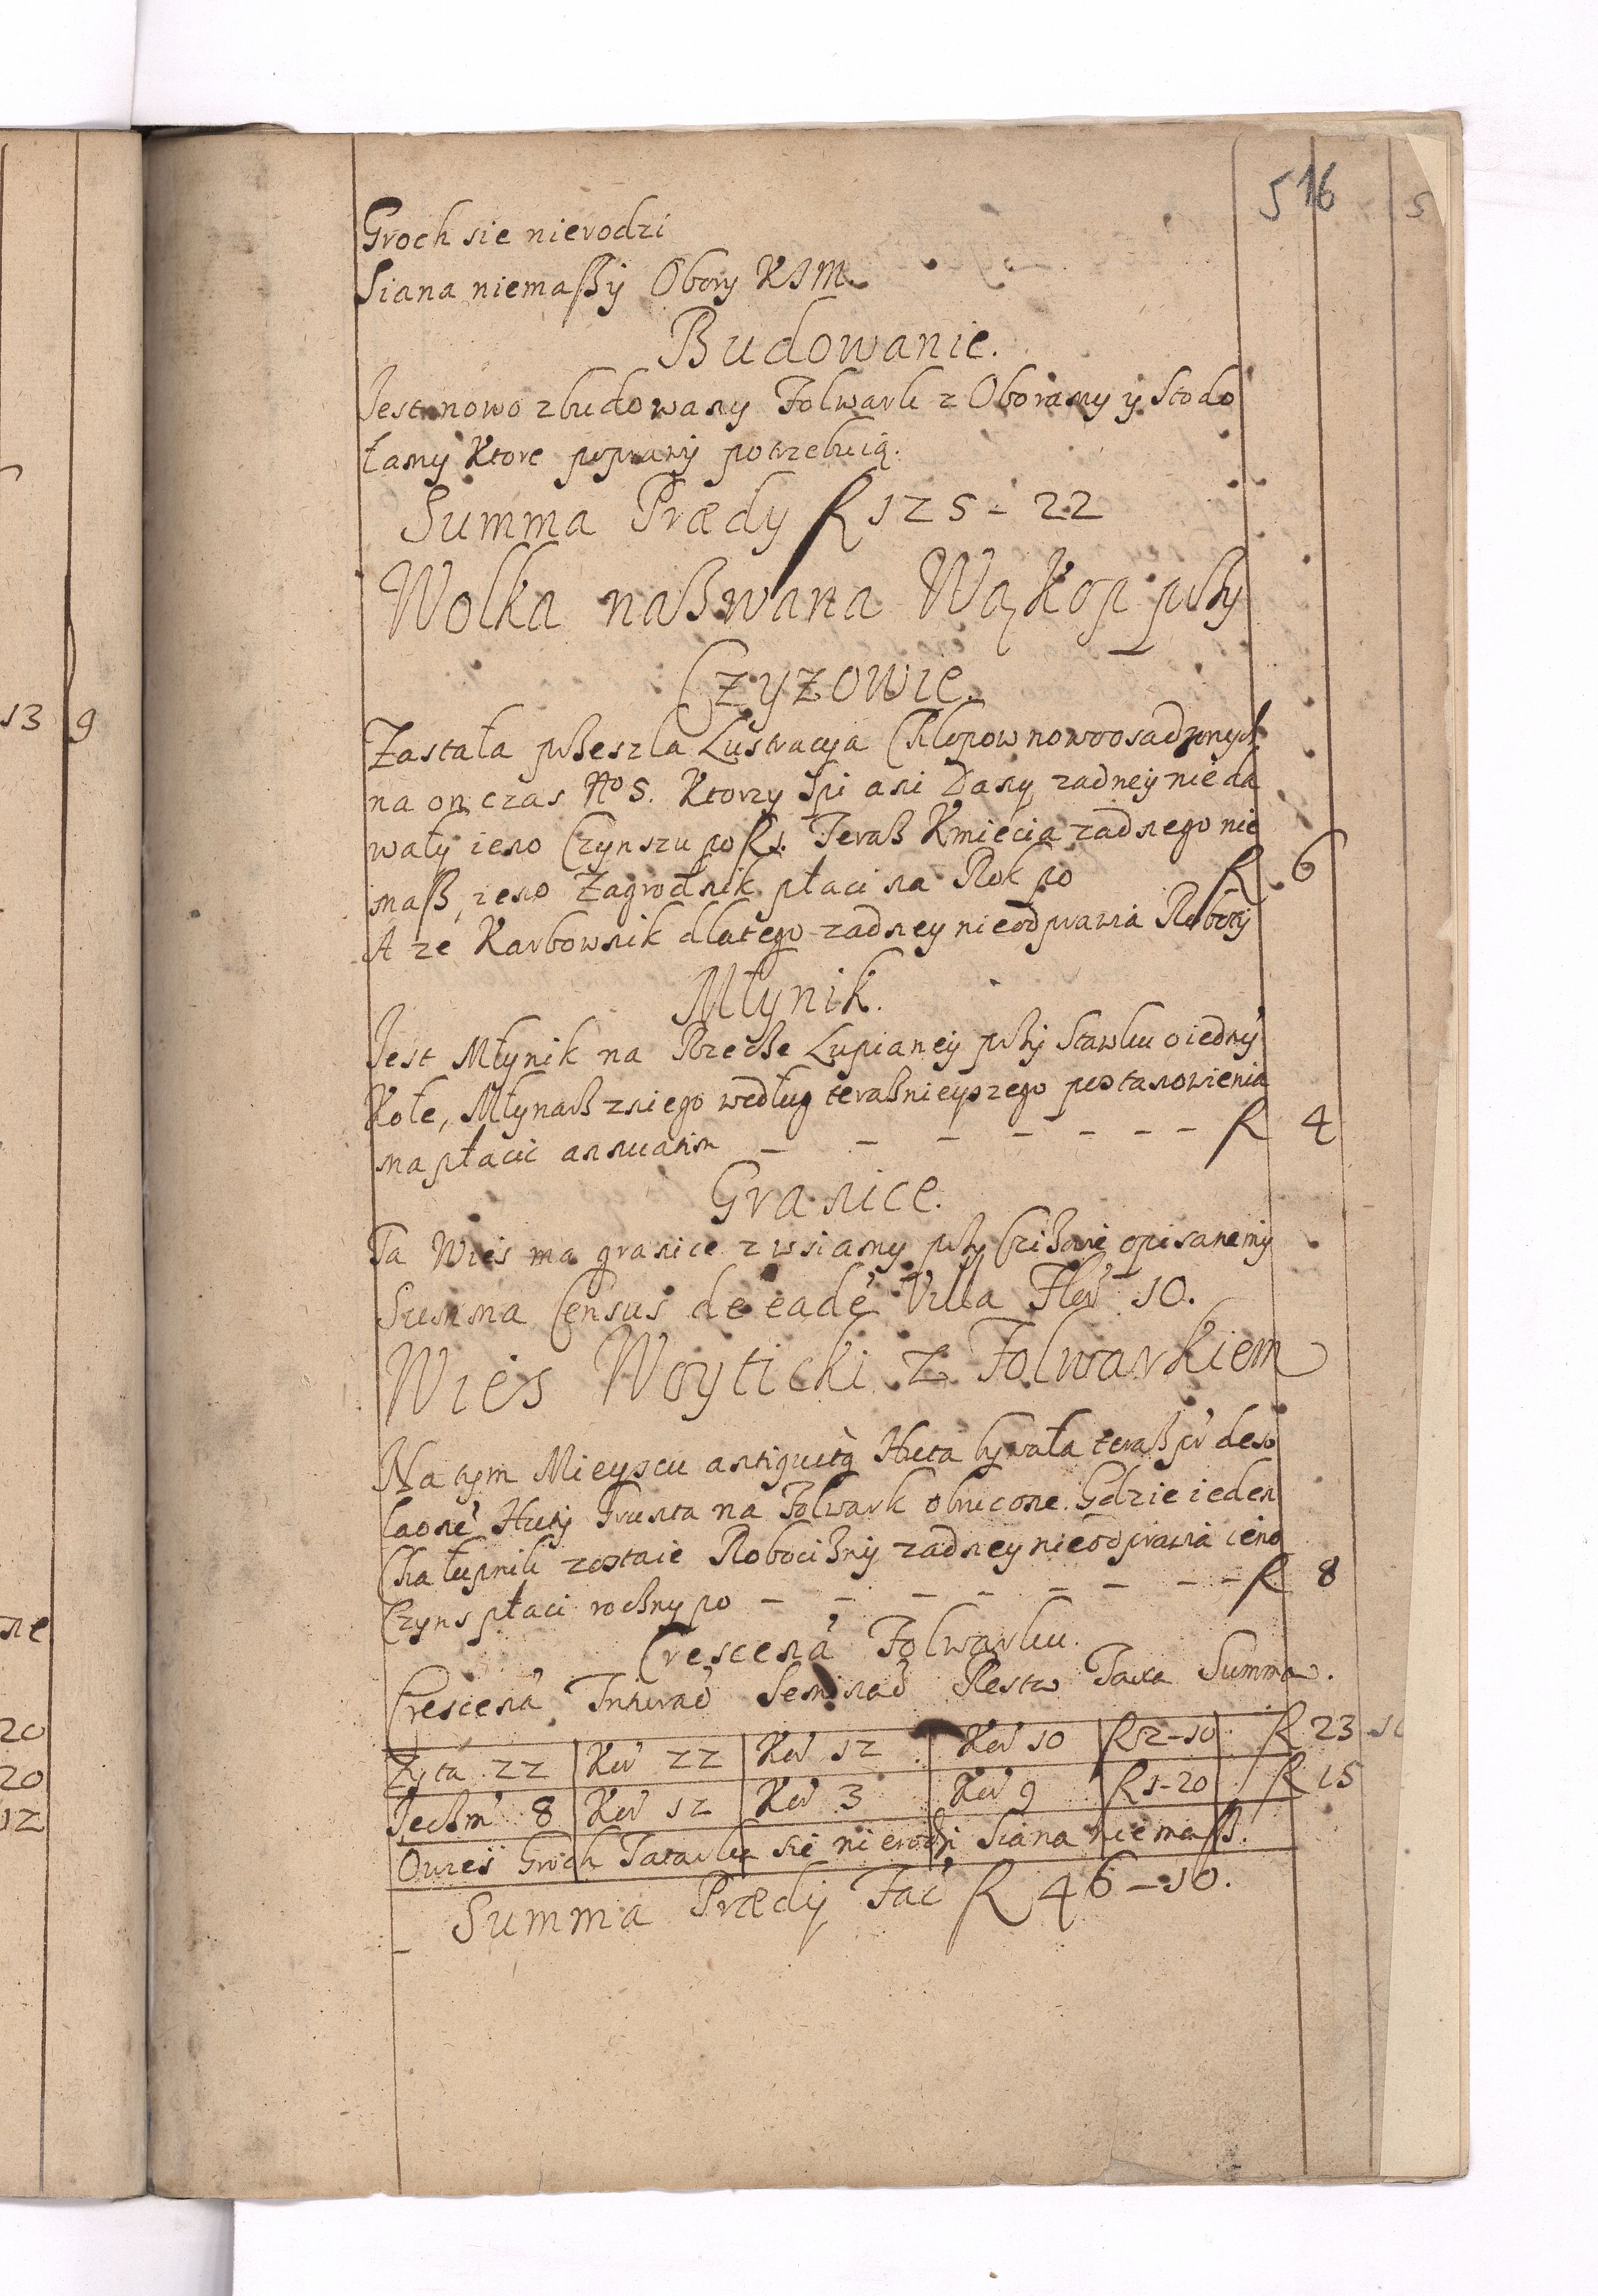 516
Groch sie nierodzi
Siana niemaßy Obory KJM
Budowanie.
Jest nowo zbudowany Folwark z Oboramy y Stodo
łamy Ktore poprawy potrzebuią.
Summa Prædy R 125 - 22
Wolka naßwana Wąkop pßy
Czyzowie.
Zastała pßeszla Lustracya Chlopow nowoosadzonych
na on czas No 5. Ktorzy Spi ani Dany zadney nie da
waly ieno Czynszu po R 1. Teraß Kmiecia zadnego nie
maß, ieno Zagrodnik płaci na Rok po R 6
A ze Karbownik dlatego zadney nieodprawia Roboty
Młynik.
Jest Młynik na Rzecße Lupianey pßy Stawku o iedny
Kole, Młynarß z niego według teraßnieyszego postanowienia
ma płacic annuatim - - - - - - - R 4
Granice.
Ta Wies ma granice z wsiamy pßy Czißowie opisanemy
Summa Census de eade Villa Flor 10.
Wies Woyticki z Folwarkiem
Na tym Mieyscu antiquitq Huta bywała teraß pr deso
laone Huty Grunta na Folwark obrucone. Gdzie ieden
Chałupnik zostaie Robocißny zadney nieodprawia ieno
Czyns płaci rocßny po - - - - - - - R 8
Crescena Folwarku.
Crescena Triturao Seminao Resto Taxa Summa.
Zyta 22 Kor 22 Kor 12 Kor 10 R 2-10 R 23 10
Jecßm 8 Kor 12 Kor 3 Kor 9 R 1-20 R 15
Owies Groch Tatarka sie nierodzi Siana niemaß.
Summa Prædy Fac R 46-10.
13 9
ne
20
20
12